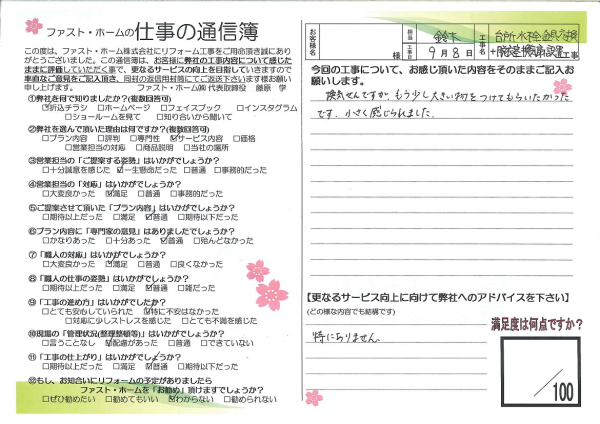 ファスト・ホームの仕事の通信簿
この度は、ファスト・ホーム株式会社にリフォーム工事をご用命頂き誠にあり
がとうございました。この通信簿は、お客様に弊社の工事内容について感じた
ままに評価していただく事で、更なるサービスの向上を目指していきますので
率直なご意見をご記入頂き、同封の返信用封筒にてご返送下さいます様お願い
申し上げます。 ファスト・ホーム㈱ 代表取締役 藤原 学
①弊社を何で知りましたか?(複数回答可)
☑折込チラシ □ホームページ □フェイスブック □インスタグラム
□ショールームを見て □知り合いから聞いて
②弊社を選んで頂いた理由は何ですか?(複数回答可)
□プラン内容 □評判 □専門性 ☑サービス内容 □価格
□営業担当の対応 □商品説明 □当社の場所
③営業担当の「ご提案する姿勢」はいかがでしょうか?
□十分誠意を感じた ☑一生懸命だった □普通 □事務的だった
④営業担当の「対応」はいかがでしょうか?
□大変良かった ☑満足 □普通 □事務的だった
⑤ご提案させて頂いた「プラン内容」はいかがでしょうか?
□期待以上だった □満足 ☑普通 □期待以下だった
⑥プラン内容に「専門家の意見」はありましたでしょうか?
□かなりあった □十分あった ☑普通 □殆んどなかった
⑦「職人の対応」はいかがでしょうか?
□大変良かった ☑満足 □普通 □良くなかった
⑧「職人の仕事の姿勢」はいかがでしょうか?
□期待以上だった ☑満足 □普通 □雑だった
⑨「工事の進め方」はいかがでしたか?
□とても安心していられた ☑特に不安はなかった
□対応に少しストレスを感じた □とても不満を感じた
⑩現場の「管理状況(整理整頓等)」はいかがでしょうか?
□言うことなし ☑配慮があった □普通 □できていない
⑪「工事の仕上がり」はいかがでしょうか?
□期待以上だった ☑満足 □普通 □期待以下だった
⑫もし、お知合いにリフォームの予定がありましたら
ファスト・ホームを「お勧め」頂けますでしょうか?
□ぜひ勧めたい □勧めてもいい ☑わからない □勧められない
お客様名 様
担当 鈴木
工事日 9月8日
工事名 台所水栓金具交換
+脱衣換気扇設置工事
今回の工事について、お感じ頂いた内容をそのままご記入お
願いします。
換気せんですが、もう少し大きい物をつけてもらいたかった
です。小さく感じられました。
【更なるサービス向上に向けて弊社へのアドバイスを下さい】
(どの様な内容でも結構です)
特にありません。
満足度は何点ですか?
/100